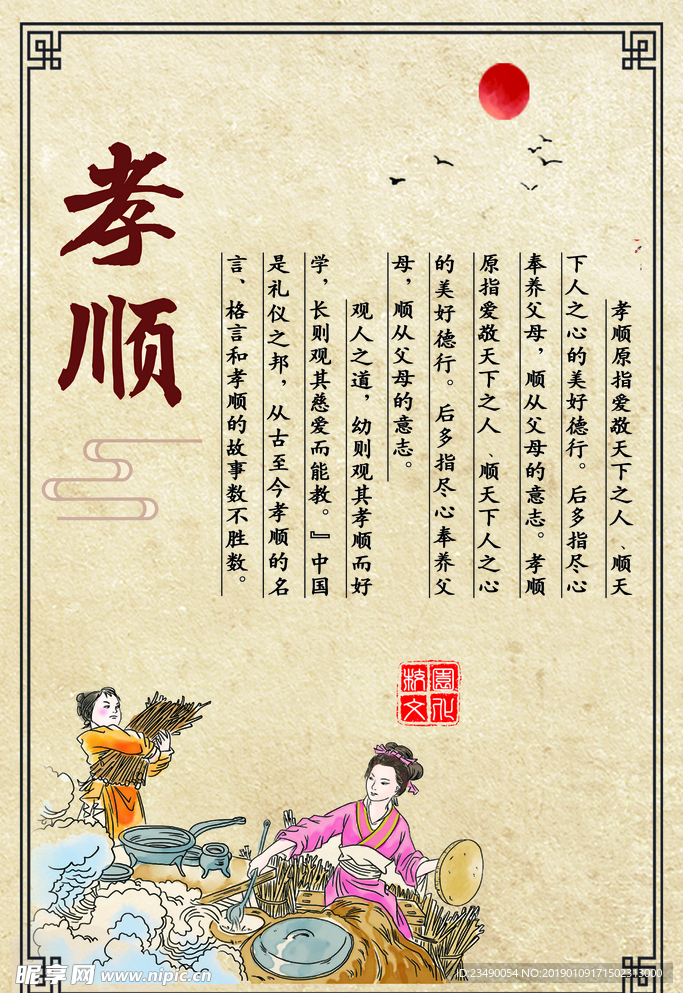 孝顺
孝顺原指爱敬天下之人、顺天
下人之心的美好德行。后多指尽心
奉养父母，顺从父母的意志。孝顺
原指爱敬天下之人、顺天下人之心
的美好德行。后多指尽心奉养父
母，顺从父母的意志。
观人之道，幼则观其孝顺而好
学，长则观其慈爱而能教。』中国
是礼仪之邦，从古至今孝顺的名
言、格言和孝顺的故事数不胜数。
校園
文化
昵享网 www.nipic.cn
ID:23490054 NO:20190109171502313000